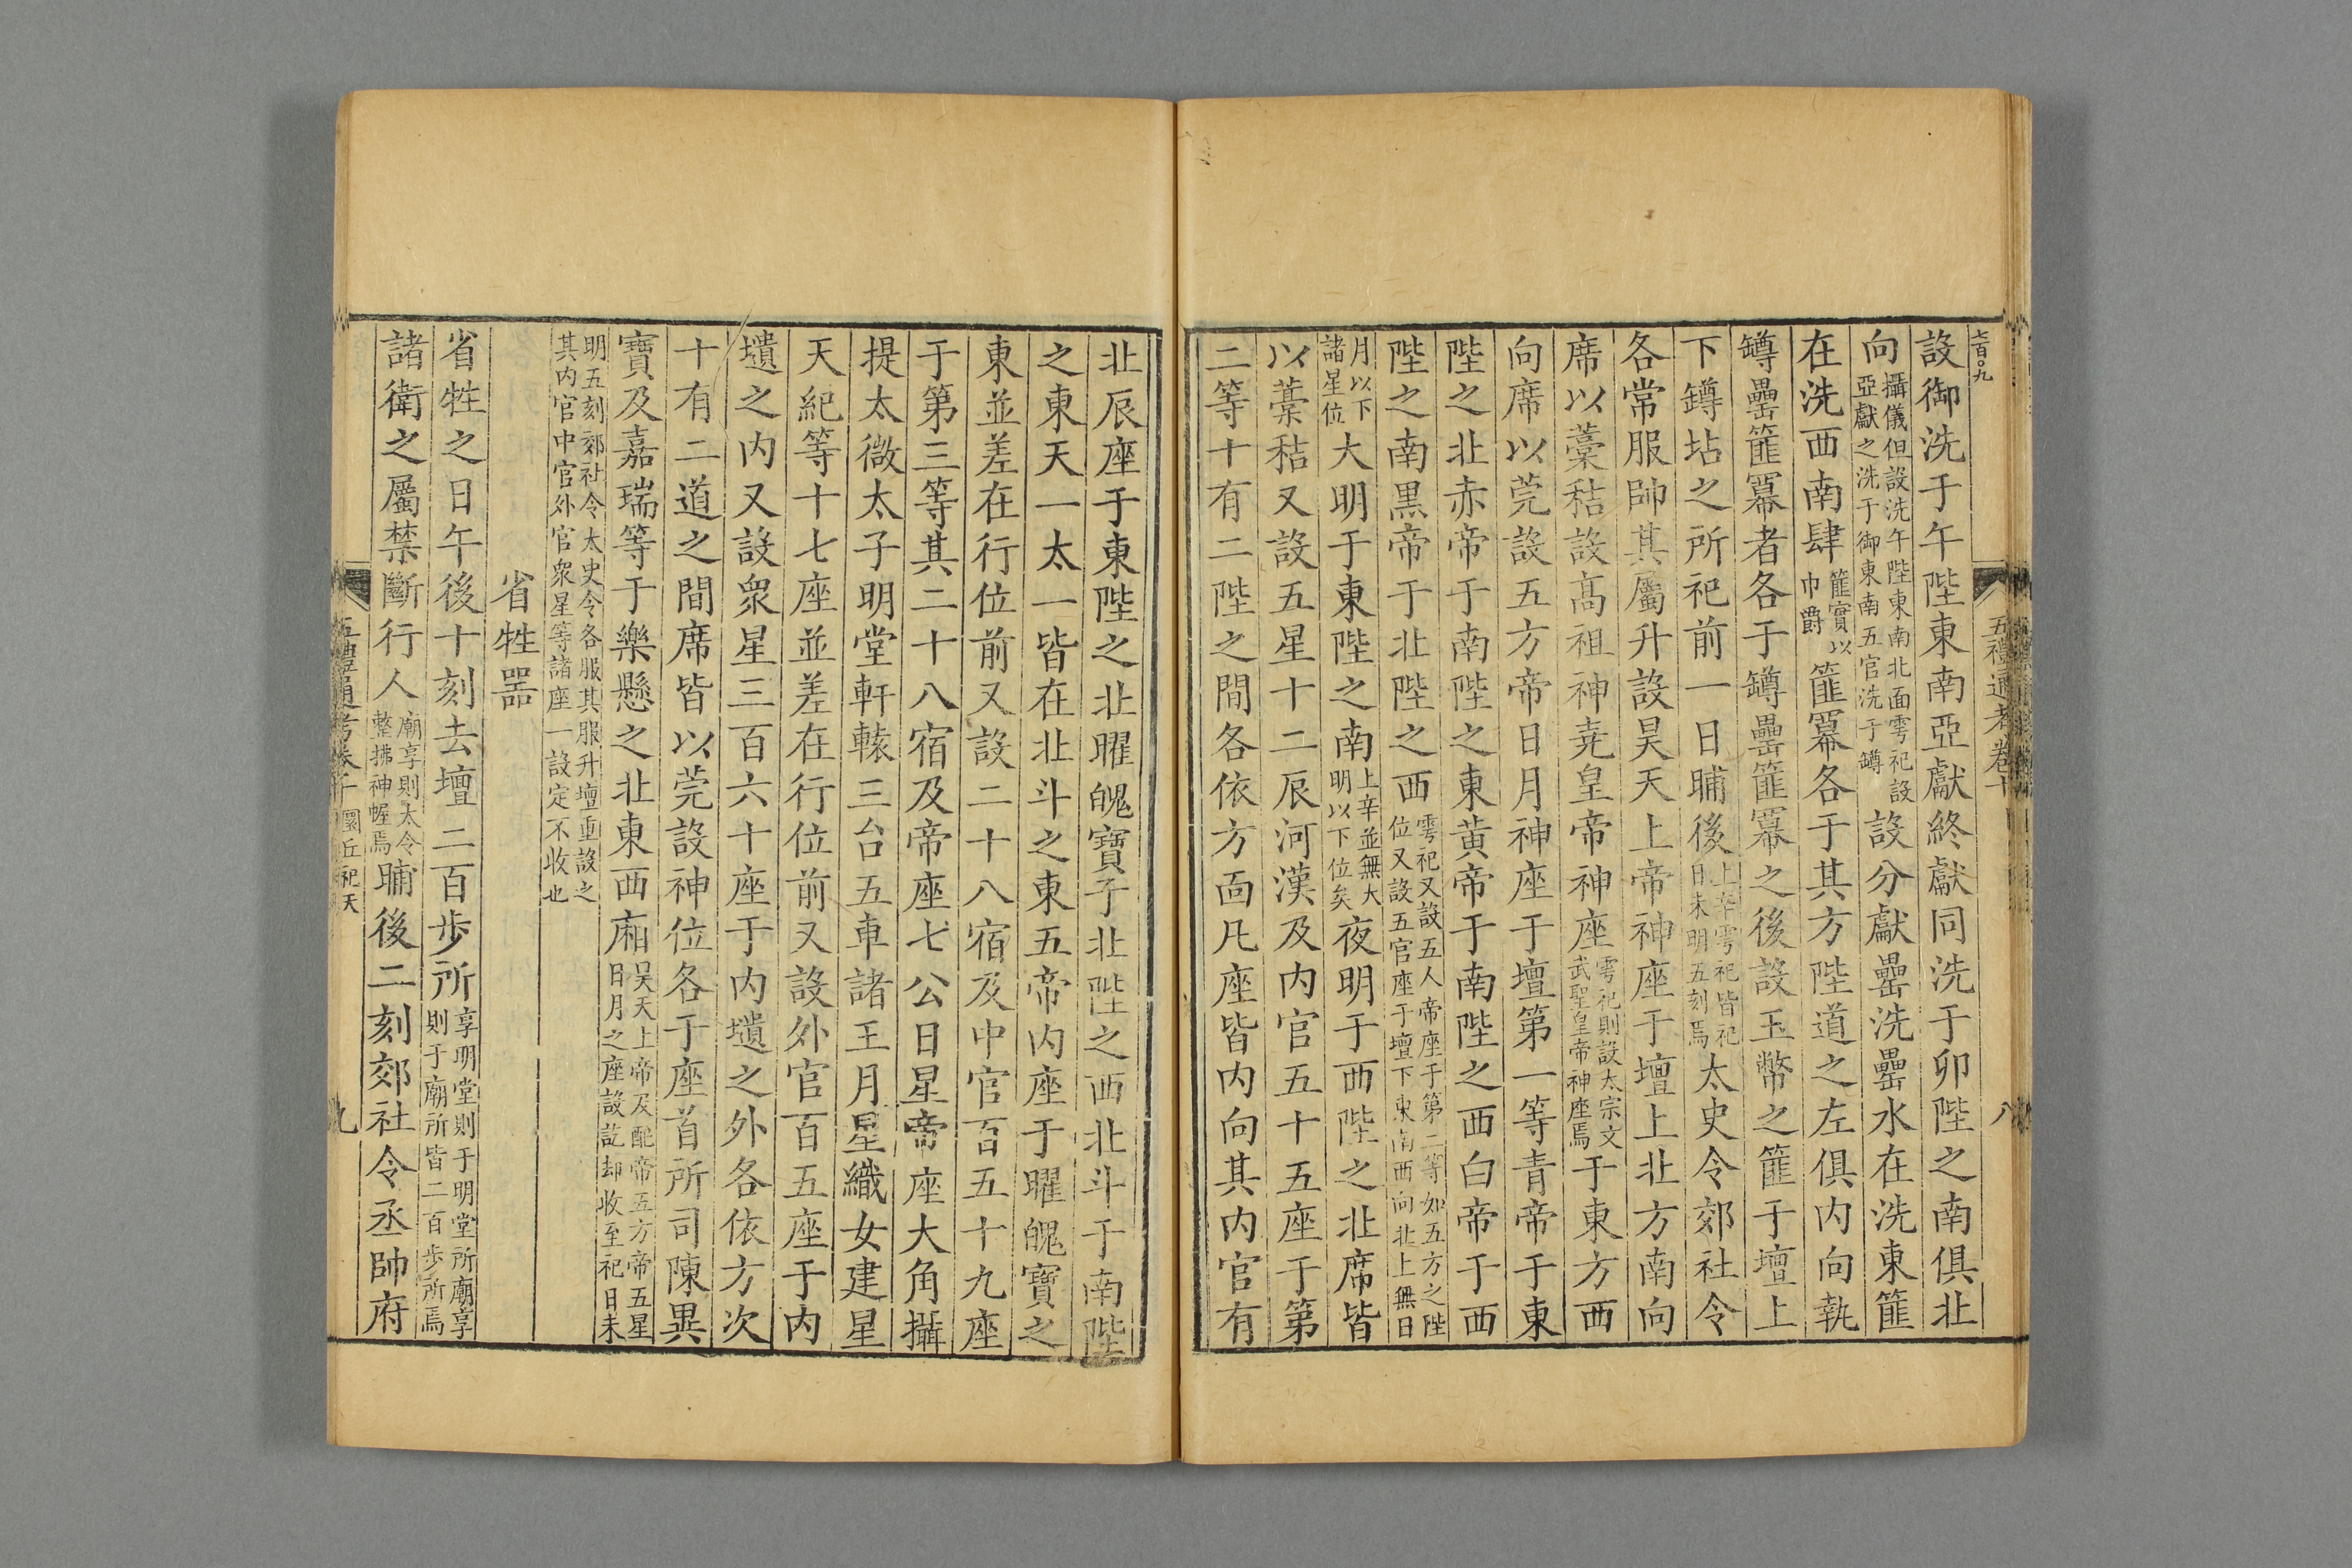 七百〇九
設御洗于午陛東南亞獻終獻同洗于卯陛之南俱北
向攝儀但設洗午陛東南北面雩祀設亞獻之洗于御東南五官洗于罇設分獻罍洗罍水在洗東篚
在洗西南肆篚實以巾爵篚冪各于其方陛道之左俱内向執
罇罍篚冪者各于罇罍篚冪之後設玉幣之篚于壇上
下罇坫之所祀前一日晡後上辛雩祀皆祀日未明五刻焉太史令郊社令
各常服帥其屬升設昊天上帝神座于壇上北方南向
席以藁秸設髙祖神堯皇帝神座雩祀則設太宗文武聖皇帝神座焉于東方西
向席以莞設五方帝日月神座于壇第一等青帝于東
陛之北赤帝于南陛之東黄帝于南陛之西白帝于西
陛之南黒帝于北陛之西雩祀又設五人帝座于第二等如五方之陛位又設五官座于壇下東南西向北上無日
月以下諸星位大明于東陛之南上辛並無大明以下位矣夜明于西陛之北席皆
以藁秸又設五星十二辰河漢及内官五十五座于第
二等十有二陛之間各依方面凡座皆内向其内官有
五禮通考卷十
八
北辰座于東陛之北曜魄寶于北陛之西北斗于南陛
之東天一太一皆在北斗之東五帝内座于曜魄寶之
東並差在行位前又設二十八宿及中官百五十九座
于第三等其二十八宿及帝座七公日星帝座大角攝
提太微太子明堂軒轅三台五車諸王月星織女建星
天紀等十七座並差在行位前又設外官百五座于内
壝之内又設衆星三百六十座于内壝之外各依方次
十有二道之間席皆以莞設神位各于座首所司陳異
寶及嘉瑞等于樂懸之北東西廂昊天上帝及配帝五方帝五星日月之座設訖却收至祀日未
明五刻郊社令太史令各服其服升壇重設之其内官中官外官衆星等諸座一設定不收也
省牲噐
省牲之日午後十刻去壇二百歩所享明堂則于明堂所廟享則于廟所皆二百歩所焉
諸衛之屬禁斷行人廟享則太令整拂神幄焉晡後二刻郊社令丞帥府
五禮通考卷十 圜丘祀天
九